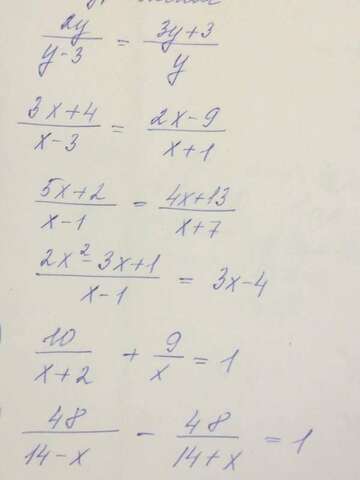 2y/(y-3) = (3y+3)/y
(3x+4)/(x-3) = (2x-9)/(x+1)
(5x+2)/(x-1) = (4x+13)/(x+7)
(2x²-3x+1)/(x-1) = 3x-4
10/(x+2) + 9/x = 1
48/(14-x) - 48/(14+x) = 1